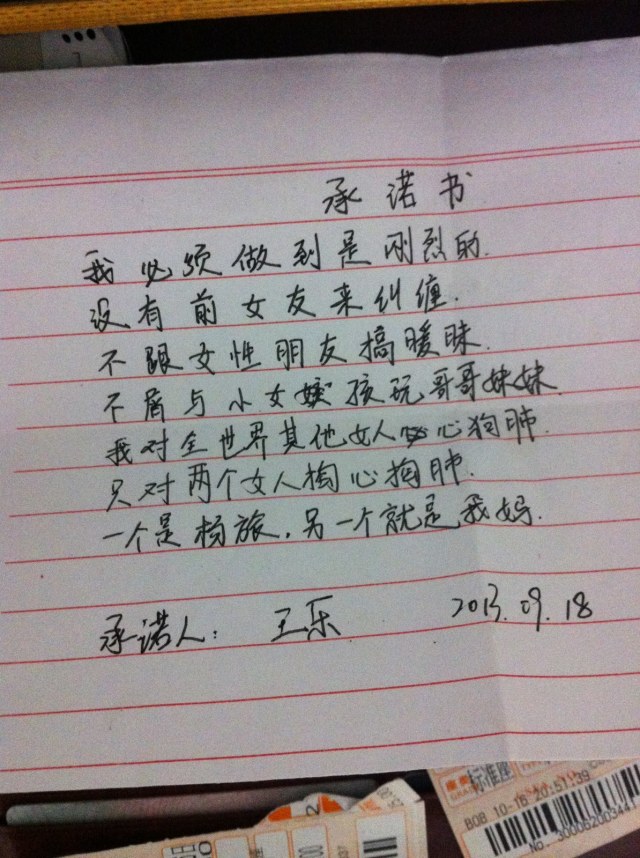 承诺书
我必须做到是刚烈的.
没有前女友来纠缠.
不跟女性朋友搞暧昧.
不屑与小女孩玩哥哥妹妹
我对全世界其他女人心狗肺.
只对两个女人掏心掏肺.
一个是杨旅,另一个就是我妈.
承诺人: 王乐 2013.09.18
标准座
B08 10-16 20:51:39
No. 30006200344